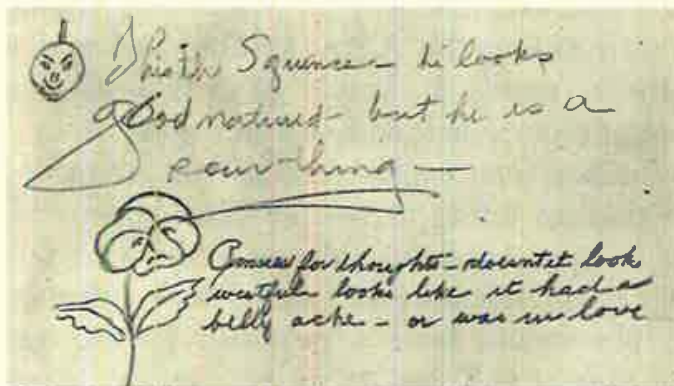 he looks
good natured but he is a
sour thing —
for thoughts — doesnt it look
wistful looks like it had a
belly ache — or was in love